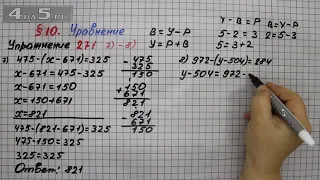 4na5.ru
§10. Уравнение
Упражнение 271 7)-8)
B=У-Р
У=Р+В
У-В=Р В=У-Р
5-2=3 2=5-3
5=3+2
7) 475-(х-671)=325
х-671=475-325
х-671=150
х=150+671
х=821
475-(821-671)=325
475-150=325
325=325
Ответ: 821
-475
325
150
+150
671
821
-821
671
150
8) 972-(у-504)=284
у-504=972-